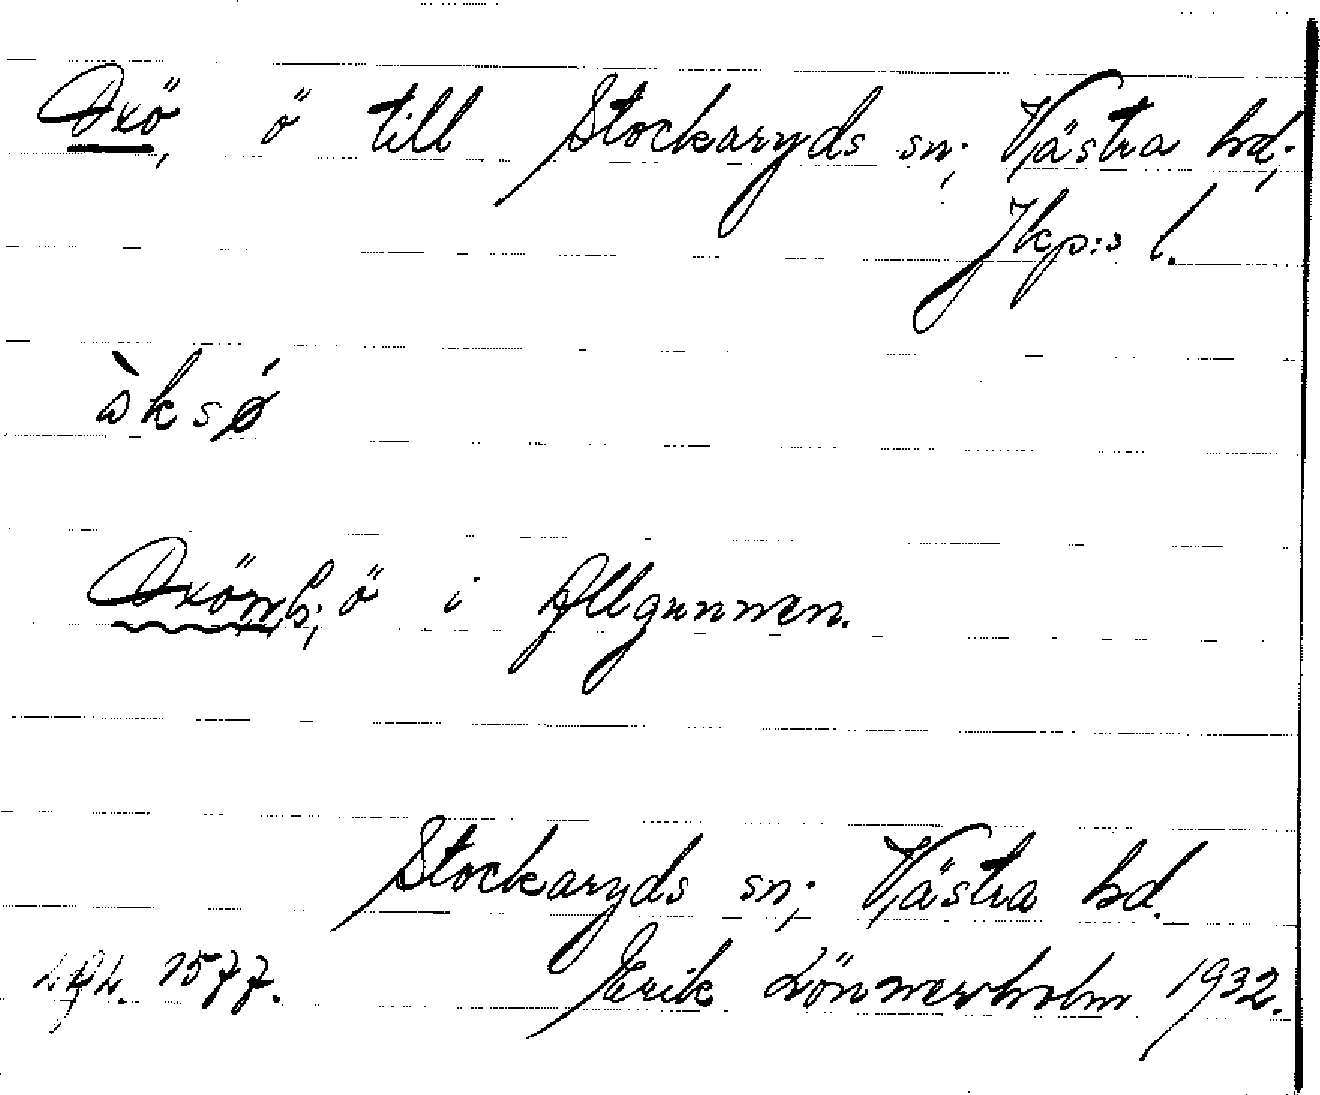 Oxö, ö till Stockaryds sn; Västra hd;
Jkp:s l.
òksǿ
Oxön, ö i Allgunnen.
Stockaryds sn; Västra hd.
1577. Erik Lönnerholm 1932.